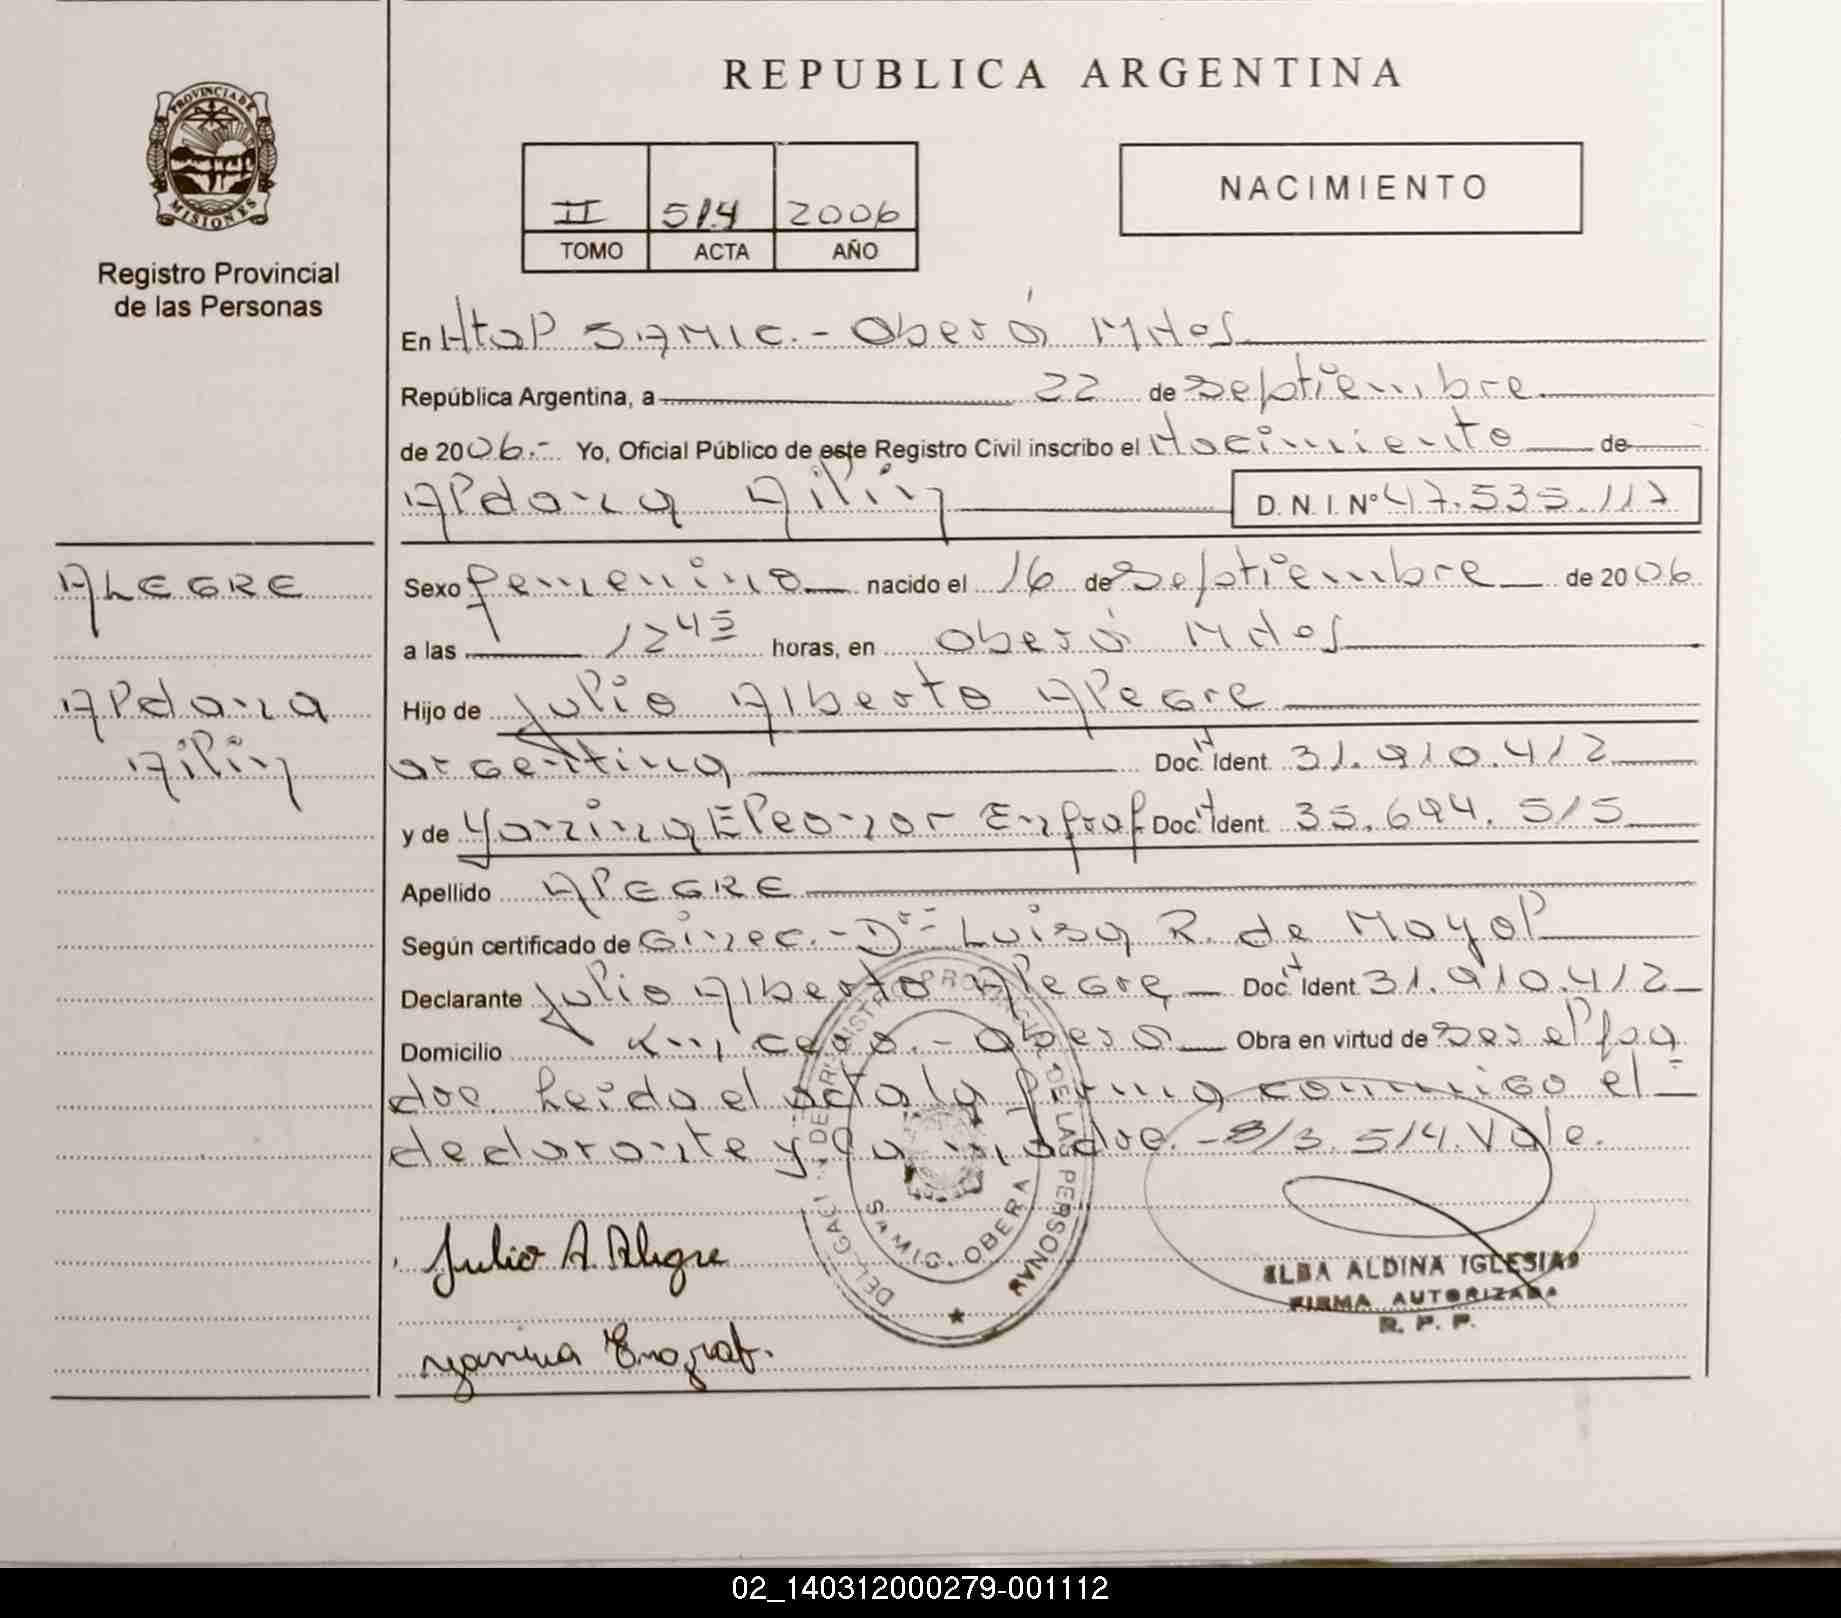 REPUBLICA ARGENTINA
PROVINCIA DE
MISIONES
Registro Provincial
de las Personas
II 514 2006
TOMO ACTA AÑO
NACIMIENTO
En Htal SAMIC.- Oberá Mnes
República Argentina, a 22 de Septiembre
de 2006.- Yo, Oficial Público de este Registro Civil inscribo el Nacimiento de
Aldana Ailin D. N. I. Nº 47.535.117
ALEGRE
Aldana
Ailin
Sexo femenino nacido el 16 de Septiembre de 2006
a las 12 45 horas, en Oberá Mnes
Hijo de Julio Alberto Alegre
argentina Doc. Ident. 31.910.412
y de Yanina Eleonor Engraf Doc. Ident. 35.694.515
Apellido AlEGRE
Según certificado de Ginec.- Dra Luisa R. de Mayol
Declarante Julio Alberto Alegre Doc. Ident. 31.910.412
Domicilio Obera Obra en virtud de ser el pa
dre. Leida el acta la firma conmigo el
declarante y la madre. - 8/3. 514. Vale.
Julio A. Alegre
Yanina Engraf.
DELEGACI DE REGISTR PROVINCIAL DE LAS PERSONAS
SAMIC. OBERA
ELBA ALDINA IGLESIAS
FIRMA AUTORIZADA
R. P. P.
02_140312000279-001112